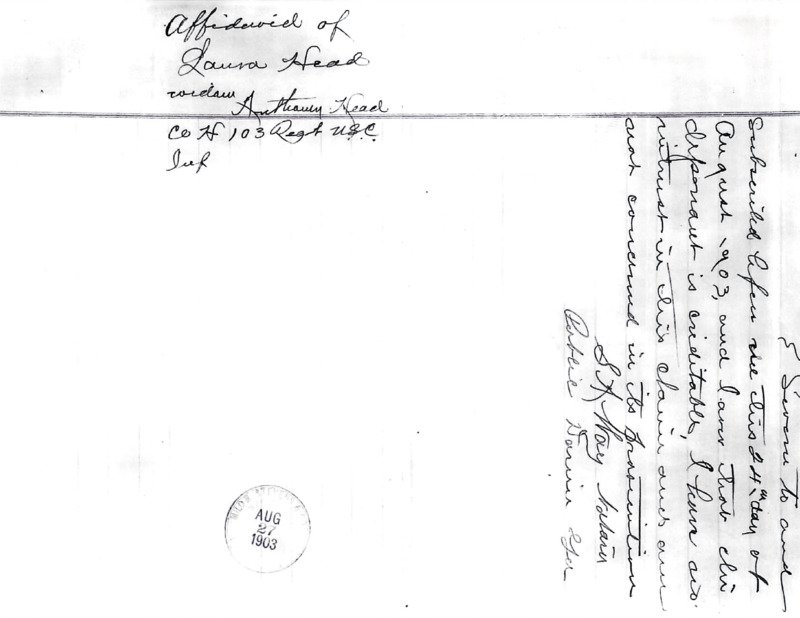 Affidavid of
Laura Head
widow
Anthony Head
Co H 103 Regt U.S.C.
Inf
Sworn to and
Subscribed before me this 24th day of
August 1903, and I aver that the
deponant is creditable, I have no
intrust in this claim and am
not concerned in its prosecution
S. H. Notary
Public
AUG
27
1903